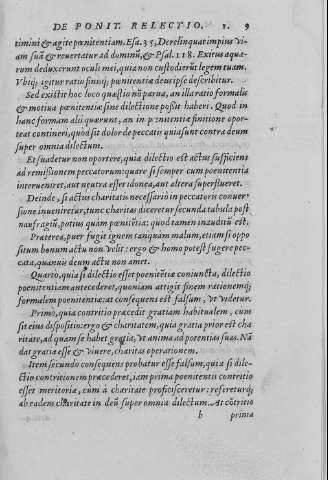 DE PONIT. RELECTIO. 1. 9
timini & agite pœnitentiam. Esa. 35, Derelinquat impius vi-
am suã & reuertatur ad dominũ, & Psal. 118. Exitus aqua-
rum deduxerunt oculi mei, quia non custodierũt legem tuam.
Vbiq; igitur ratio finisq; pœnitentiæ deus ipse describitur.
Sed existit hoc loco quæstio nõ parua, an illa ratio formalis
& motiua pœnitentiæ sine dilectione possit haberi. Quod in
hanc formam alij quærunt, an in pœnitentiæ finitione opor-
teat contineri, quòd sit dolor de peccatis quia sunt contra deum
super omnia dilectum.
Et suadetur non oportere, quia dilectio est actus sufficiens
ad remissionem peccatorum: quare si semper cum poenitentia
interueniret, aut neutra esset idonea, aut altera superflueret.
Deinde, si actus charitatis necessariò in peccatoris conuer-
sione inueniretur, tunc charitas diceretur secunda tabula post
naufragiũ, potius quàm pœnitẽtia: quod tamen inauditũ est.
Præterea, puer fugit ignem tanquàm malum, etiam si oppo
situm bonum actu non velit: ergo & homo potest fugere pec-
cata, quamuis deum actu non amet.
Quarto, quia si dilectio esset poenitẽtiæ coniuncta, dilectio
poenitentiam antecederet, quoniam attigit finem rationemq;
formalem poenitentiæ: at consequens est falsum, vt videtur.
Primo, quia contritio præcedit gratiam habitualem, cum
sit eius dispositio: ergo & charitatem, quia gratia prior est cha
ritate, ad quam se habet gratia, vt anima ad potentias suas. Nã
dat gratia esse & viuere, charitas operationem.
Item secundo consequens probatur esse falsum, quia si dile-
ctio contritionem præcederet, iam prima poenitentis contritio
esset meritoria, cum à charitate proficisceretur: refereturq;
ab eadem charitate in deũ super omnia dilectum. At cõtritio
b prima